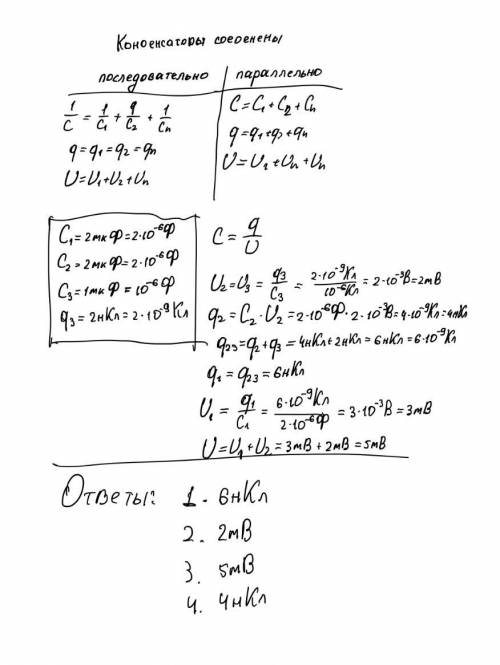 Конденсаторы соеденены
последовательно
1/C = 1/C₁ + 1/C₂ + 1/Cn
q = q₁ = q₂ = qn
U = U₁ + U₂ + Un
параллельно
C = C₁ + C₂ + Cn
q = q₁ + q₂ + qn
U = U₁ + Un + Un
C₁ = 2мкФ = 2·10⁻⁶Ф
C₂ = 2мкФ = 2·10⁻⁶Ф
C₃ = 1мкФ = 10⁻⁶Ф
q₃ = 2нКл = 2·10⁻⁹Кл
C = q/U
U₂ = U₃ = q₃/C₃ = 2·10⁻⁹Кл/10⁻⁶Кл = 2·10⁻³В = 2мВ
q₂ = C₂·U₂ = 2·10⁻⁶Ф·2·10⁻³В = 4·10⁻⁹Кл = 4нКл
q₂₃ = q₂ + q₃ = 4нКл + 2нКл = 6нКл = 6·10⁻⁹Кл
q₁ = q₂₃ = 6нКл
U₁ = q₁/C₁ = 6·10⁻⁹Кл/2·10⁻⁶Ф = 3·10⁻³В = 3мВ
U = U₁ + U₂ = 3мВ + 2мВ = 5мВ
Ответы:
1. 6нКл
2. 2мВ
3. 5мВ
4. 4нКл